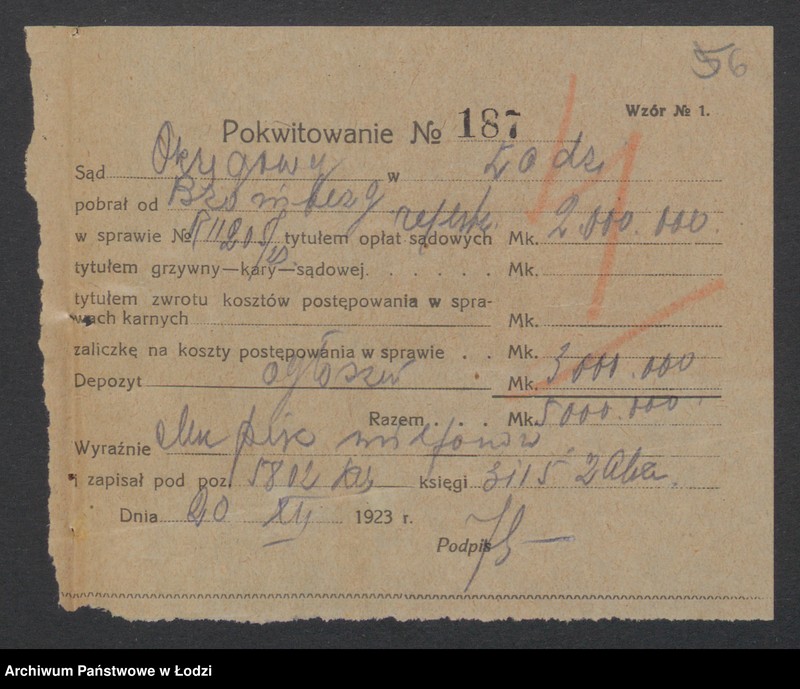 56
Wzór № 1.
Pokwitowanie № 187
Sąd Okręgowy w Łodzi
pobrał od Bromberg
w sprawie № tytułem opłat sądowych Mk. 2.000.000.
tytułem grzywny—kary—sądowej. . . . . . . Mk.
tytułem zwrotu kosztów postępowania w spra-
wach karnych Mk.
zaliczkę na koszty postępowania w sprawie . . Mk.
Depozyt ogłoszeń Mk. 3.000.000
Razem . . . Mk. 5000.000.
Wyraźnie Mk pięć miljonów
i zapisał pod poz. 5802 księgi 3115.
Dnia 20 XII 1923 r.
Podpis
Archiwum Państwowe w Łodzi